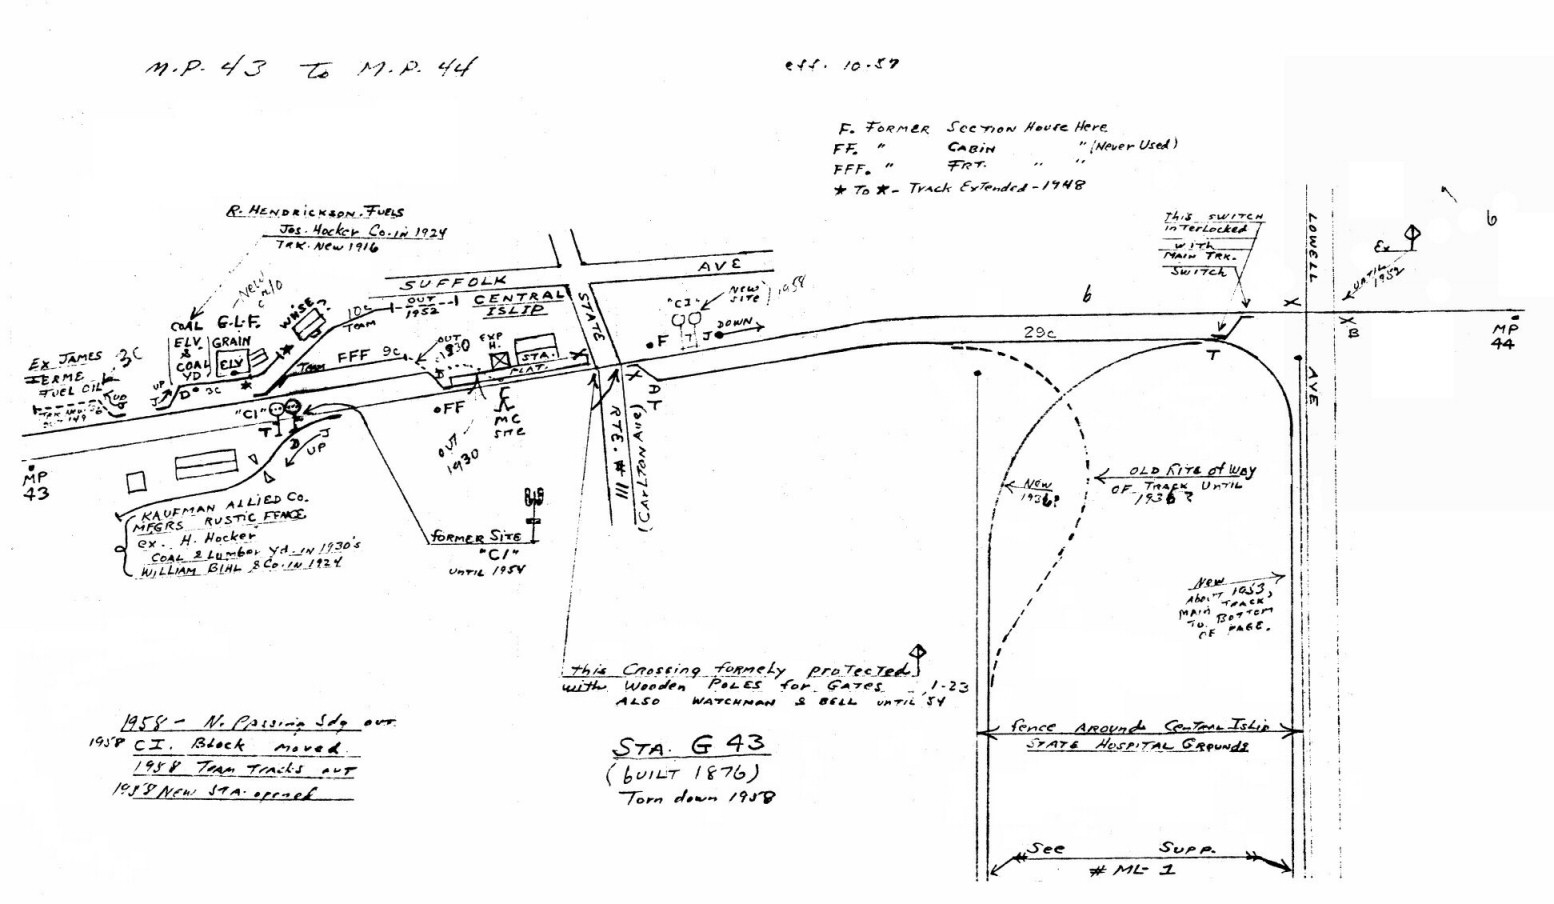 M.P. 43 To M.P. 44
eff. 10-57
F. FORMER SECTION HOUSE HERE
FF. " CABIN " (Never Used)
FFF. " FRT. " "
★ To ★ - Track Extended - 1948
6
R. HENDRICKSON. FUELS
Jos. Hocker Co. in 1924
TRK. New 1916
SUFFOLK AVE
OUT 1952
CENTRAL
ISLIP
STATE
10c
TEAM
WHSE?
G.L.F.
GRAIN
ELV
COAL
ELV
&
COAL
YD
Ex JAMES
FUEL OIL
3c
UP
J
D
3c
FFF 9c
Team
OUT
1930
EXP
H.
STA.
PLAT.
FF
OUT
1930
MC
SITE
"CI"
T
D
J
UP
"CI"
NEW
SITE 1958
T
J
DOWN
F
X
AT
RTE. # 111
(CARLTON AVE)
6
29c
T
This SWITCH
interlocked
WITH
MAIN TRK.
SWITCH
LOWELL
AVE
X
X
B
Ex
UNTIL
1952
MP
44
MP
43
KAUFMAN ALLIED CO.
MFGRS RUSTIC FENCE
ex. H. Hocker
COAL & Lumber Yd. IN 1930's
WILLIAM BIHL & Co. IN 1924
FORMER SITE
"CI"
UNTIL 1954
NEW
1936?
OLD RITE of WAY
OF TRACK UNTIL
1936?
New
About 1953,
TRACK
MAIN BOTTOM
TO
OF PAGE.
this Crossing formely protected
with Wooden POLES for GATES 1-23
ALSO WATCHMAN & BELL UNTIL '54
fence AROUND CENTRAL ISLIP
STATE HOSPITAL GROUNDS
1958 - N. Passing Sdg out
1958 CI. Block moved.
1958 TEAM TRACKS OUT
1958 NEW STA. opened
STA. G 43
(BUILT 1876)
Torn down 1958
See Supp.
# ML-1